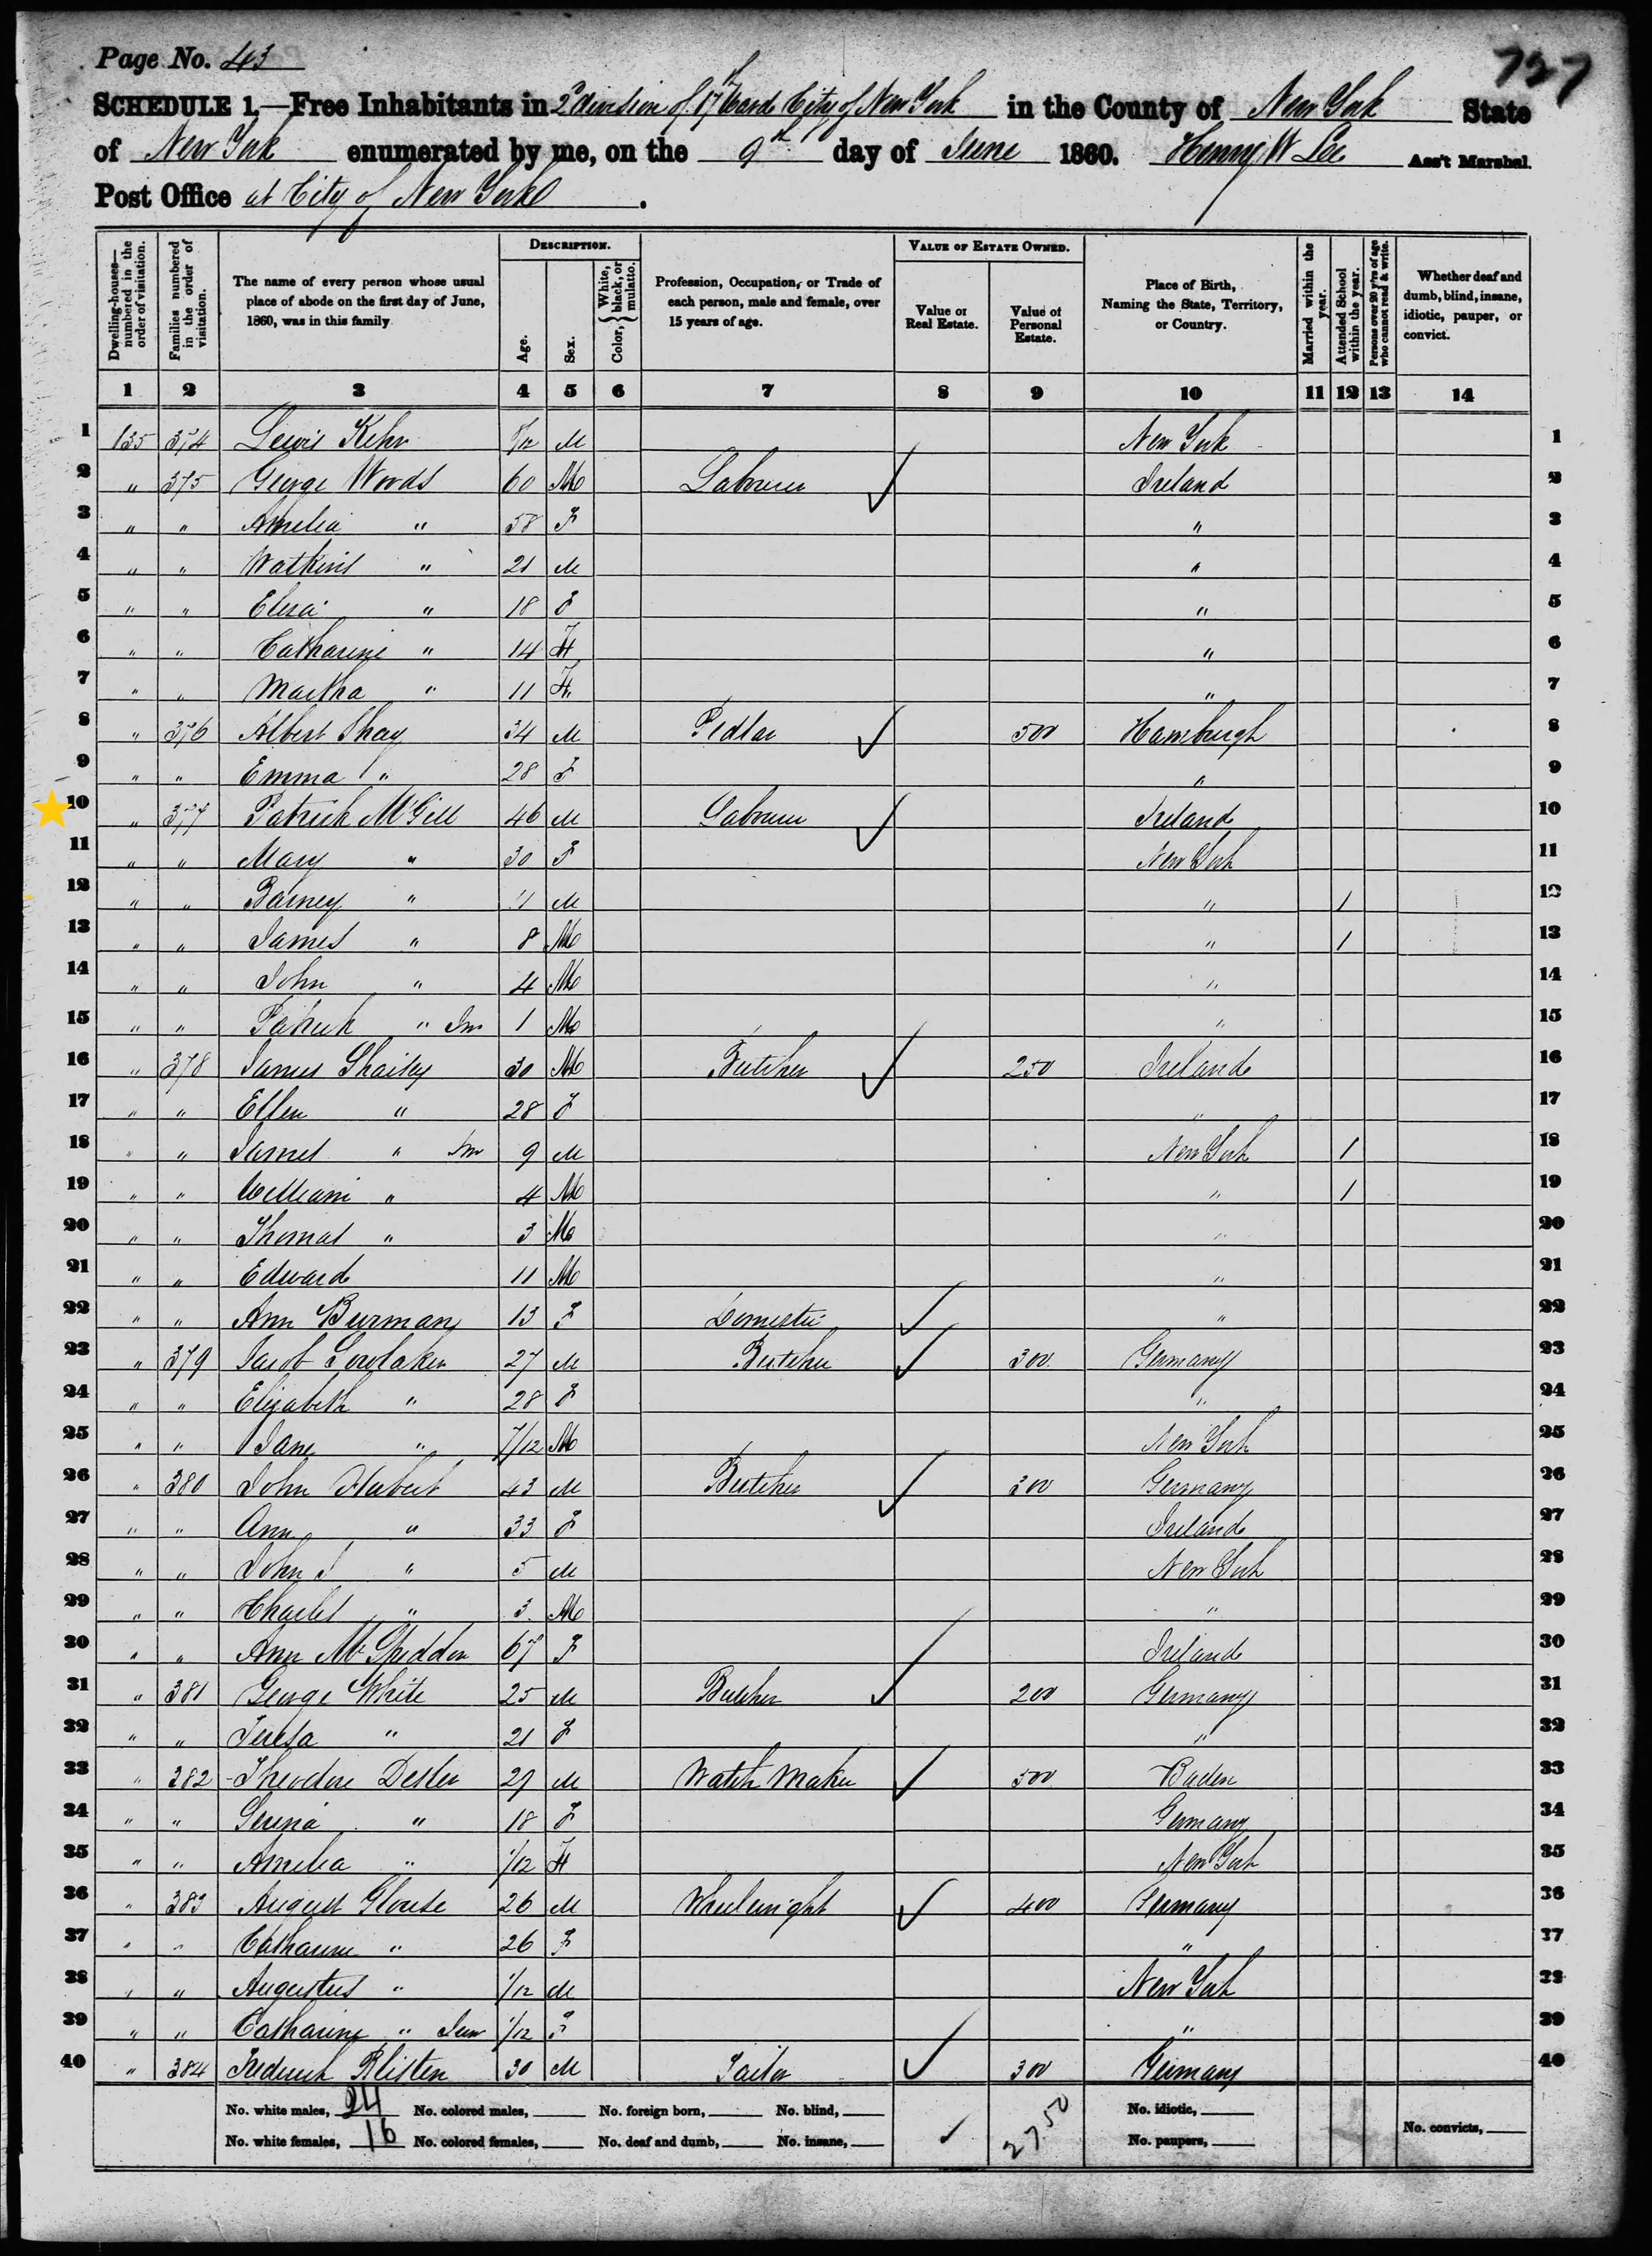 Page No. 43
727
SCHEDULE 1.—Free Inhabitants in 2d division of 17th Ward City of New York in the County of New York State
of New York enumerated by me, on the 9th day of June 1860. Henry W Lee Ass't Marshal.
Post Office at City of New York.
Dwelling-houses—numbered in the order of visitation.
Families numbered in the order of visitation.
The name of every person whose usual place of abode on the first day of June, 1860, was in this family
DESCRIPTION.
Age.
Sex.
Color, { White, black, or mulatto.
Profession, Occupation, or Trade of each person, male and female, over 15 years of age.
VALUE OF ESTATE OWNED.
Value of Real Estate.
Value of Personal Estate.
Place of Birth, Naming the State, Territory, or Country.
Married within the year.
Attended School within the year.
Persons over 20 y'rs of age who cannot read & write.
Whether deaf and dumb, blind, insane, idiotic, pauper, or convict.
1 2 3 4 5 6 7 8 9 10 11 12 13 14
1 135 374 Lewis Kehr /12 M New York 1
2 " 375 George Woods 60 M Labourer Ireland 2
3 " " Amelia " 58 F " 3
4 " " Watkins " 21 M " 4
5 " " Eliza " 18 F " 5
6 " " Catharine " 14 F " 6
7 " " Martha " 11 F " 7
8 " 376 Albert Shay 34 M Pedlar 500 Hamburgh 8
9 " " Emma " 28 F " 9
10 " 377 Patrick McGill 46 M Labourer Ireland 10
11 " " Mary " 30 F New York 11
12 " " Barney " 11 M " 1 12
13 " " James " 8 M " 1 13
14 " " John " 4 M " 14
15 " " Patrick " Jnr 1 M " 15
16 " 378 James 30 M Butcher 250 Ireland 16
17 " " Ellen " 28 F " 17
18 " " James " Jnr 9 M New York 1 18
19 " " William " 4 M " 1 19
20 " " Thomas " 3 M " 20
21 " " Edward 11 M " 21
22 " " Ann Burman 13 F Domestic " 22
23 " 379 Jacob 27 M Butcher 300 Germany 23
24 " " Elizabeth " 28 F " 24
25 " " Jane " 7/12 M New York 25
26 " 380 John Hubert 43 M Butcher 300 Germany 26
27 " " Ann " 33 F Ireland 27
28 " " John J " 5 M New York 28
29 " " Charles " 3 M " 29
30 " " Ann McSpedden 67 F Ireland 30
31 " 381 George White 25 M Butcher 200 Germany 31
32 " " Teresa " 21 F " 32
33 " 382 Theodore Desler 29 M Watch Maker 500 Baden 33
34 " " " 18 F Germany 34
35 " " Amelia " 1/12 F New York 35
36 " 383 August 26 M Wheelwright 400 Germany 36
37 " " Catharine " 26 F " 37
38 " " Augustus " 1/12 M New York 38
39 " " Catharine " Jun 1/12 F " 39
40 " 384 Frederick 30 M Tailor 300 Germany 40
No. white males, 24 No. colored males, No. foreign born, No. blind, 2750 No. idiotic,
No. white females, 16 No. colored females, No. deaf and dumb, No. insane, No. paupers, No. convicts,